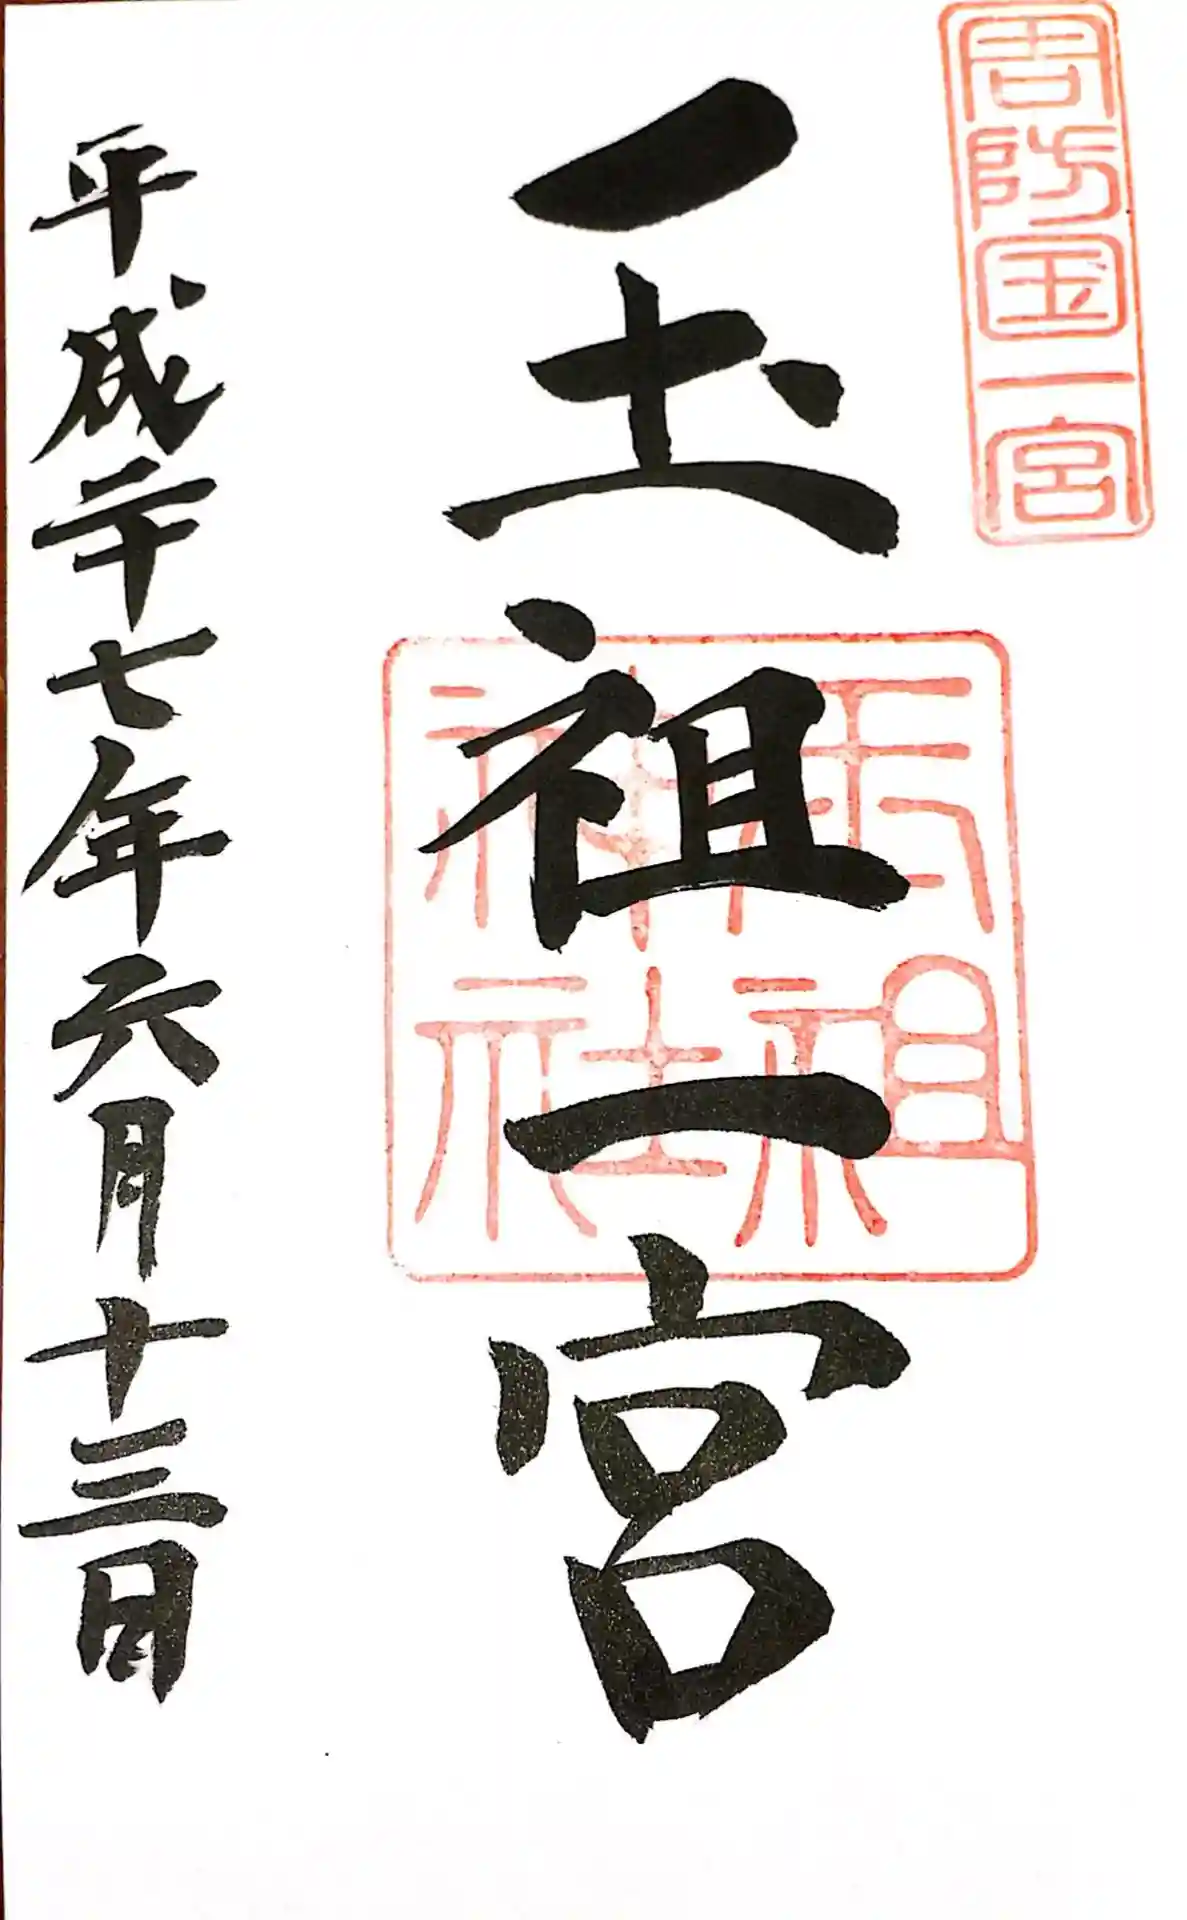 周防国一宮
玉祖一宮
玉祖
神社
平成二十七年六月十三日